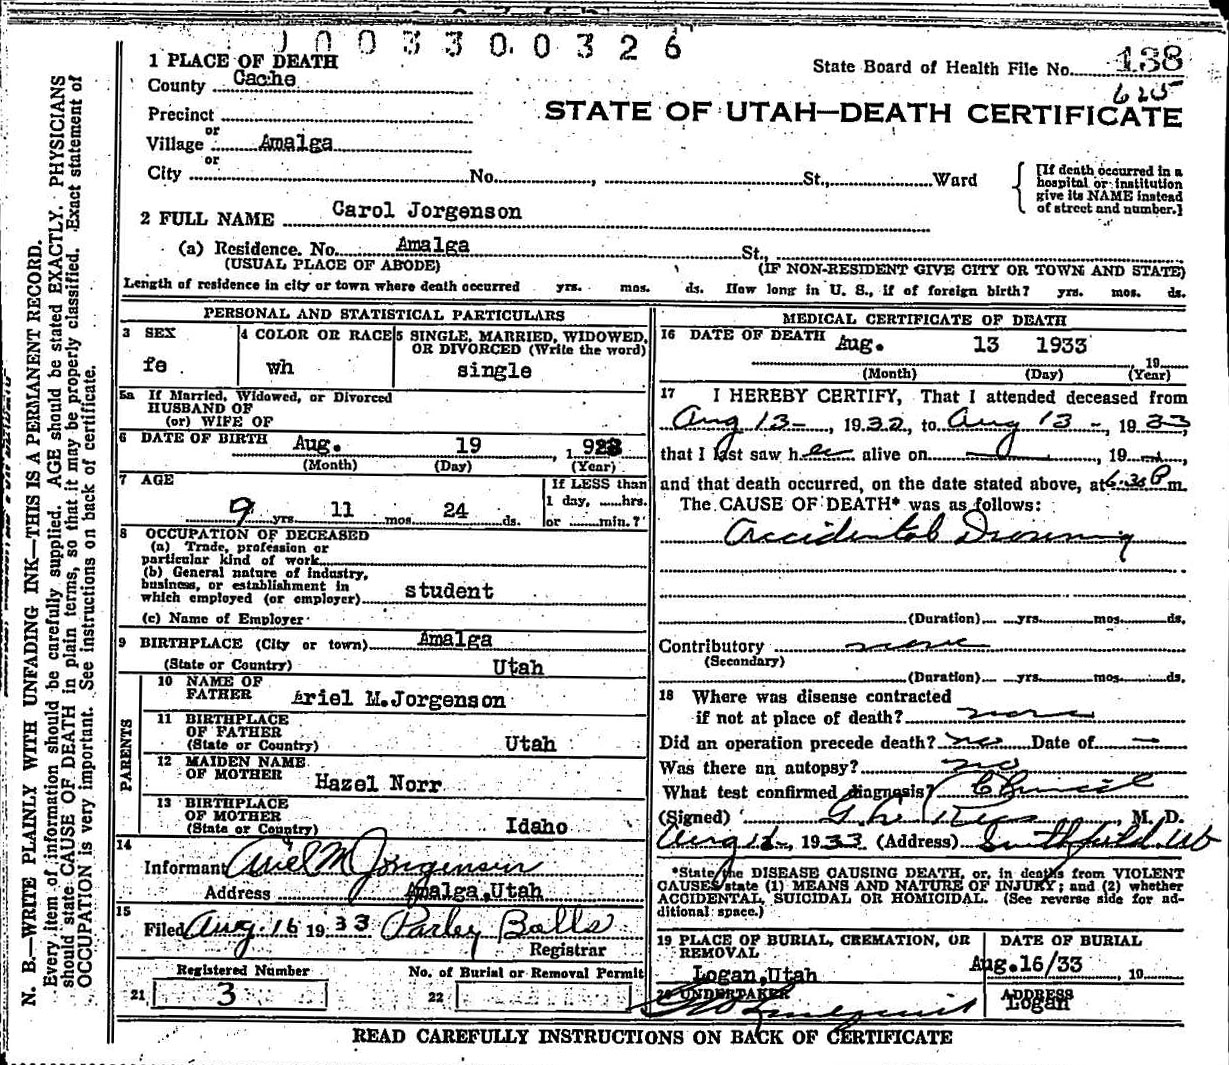 1003300326
1 PLACE OF DEATH
State Board of Health File No. 138
County Cache
625
STATE OF UTAH—DEATH CERTIFICATE
Precinct
or
Village Amalga
or
City No. , St., Ward
[If death occurred in a
hospital or institution
give its NAME instead
of street and number.]
2 FULL NAME Carol Jorgenson
(a) Residence. No. Amalga St.,
(USUAL PLACE OF ABODE) (IF NON-RESIDENT GIVE CITY OR TOWN AND STATE)
Length of residence in city or town where death occurred yrs. mos. ds. How long in U. S., if of foreign birth? yrs. mos. ds.
PERSONAL AND STATISTICAL PARTICULARS
3 SEX
fe
4 COLOR OR RACE
wh
5 SINGLE, MARRIED, WIDOWED,
OR DIVORCED (Write the word)
single
5a If Married, Widowed, or Divorced
HUSBAND OF
(or) WIFE OF
6 DATE OF BIRTH Aug. 19, 1923
(Month) (Day) (Year)
7 AGE
9 yrs. 11 mos. 24 ds.
If LESS than
1 day, hrs.
or min.?
8 OCCUPATION OF DECEASED
(a) Trade, profession or
particular kind of work
(b) General nature of industry,
business, or establishment in
which employed (or employer) student
(c) Name of Employer
9 BIRTHPLACE (City or town) Amalga
(State or Country) Utah
PARENTS
10 NAME OF
FATHER Ariel M.Jorgenson
11 BIRTHPLACE
OF FATHER
(State or Country) Utah
12 MAIDEN NAME
OF MOTHER Hazel Norr
13 BIRTHPLACE
OF MOTHER
(State or Country) Idaho
14
Informant Ariel M Jorgensen
Address Amalga,Utah
15
Filed Aug. 16 1933 Parley Balls
Registrar
Registered Number
21 3
No. of Burial or Removal Permit
22
MEDICAL CERTIFICATE OF DEATH
16 DATE OF DEATH Aug. 13 1933
19
(Month) (Day) (Year)
17 I HEREBY CERTIFY, That I attended deceased from
Aug 13-, 1932, to Aug 13-, 1933,
that I last saw her alive on —, 19—,
and that death occurred, on the date stated above, at 6:30 P m.
The CAUSE OF DEATH* was as follows:
Accidental Drowning
(Duration) yrs. mos. ds.
Contributory none
(Secondary)
(Duration) yrs. mos. ds.
18 Where was disease contracted
if not at place of death? none
Did an operation precede death? no Date of —
Was there an autopsy? no
What test confirmed diagnosis? Clinical
(Signed) , M. D.
1933 (Address) Smithfield. Ut
*State the DISEASE CAUSING DEATH, or, in deaths from VIOLENT
CAUSES state (1) MEANS AND NATURE OF INJURY; and (2) whether
ACCIDENTAL, SUICIDAL OR HOMICIDAL. (See reverse side for ad-
ditional space.)
19 PLACE OF BURIAL, CREMATION, OR
REMOVAL
Logan,Utah
DATE OF BURIAL
Aug.16/33, 19
20 UNDERTAKER
ADDRESS
Logan
READ CAREFULLY INSTRUCTIONS ON BACK OF CERTIFICATE
N. B.—WRITE PLAINLY WITH UNFADING INK—THIS IS A PERMANENT RECORD.
Every item of information should be carefully supplied. AGE should be stated EXACTLY. PHYSICIANS
should state CAUSE OF DEATH in plain terms, so that it may be properly classified. Exact statement of
OCCUPATION is very important. See instructions on back of certificate.